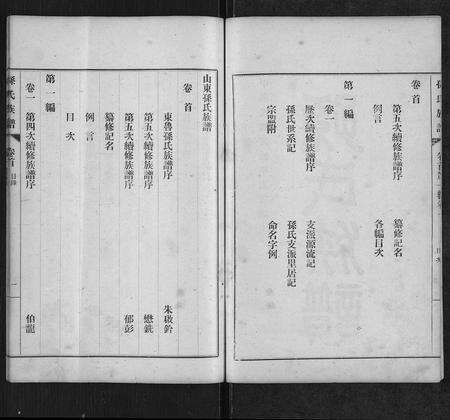 卷首
第五次續修族譜序　纂修記名
例言　各編目次
第一編
卷一
歷次續修族譜序　支派源流記
孫氏世系記　孫氏支派里居記
宗盟附　命名字例
山東孫氏族譜
卷首
東魯孫氏族譜序
第五次續修族譜序　懋銑
第五次續修族譜序　郁彭
纂修記名
例言
目次
第一編
卷一　第四次續修族譜序　伯龍
孫氏族譜　卷首　目錄　一